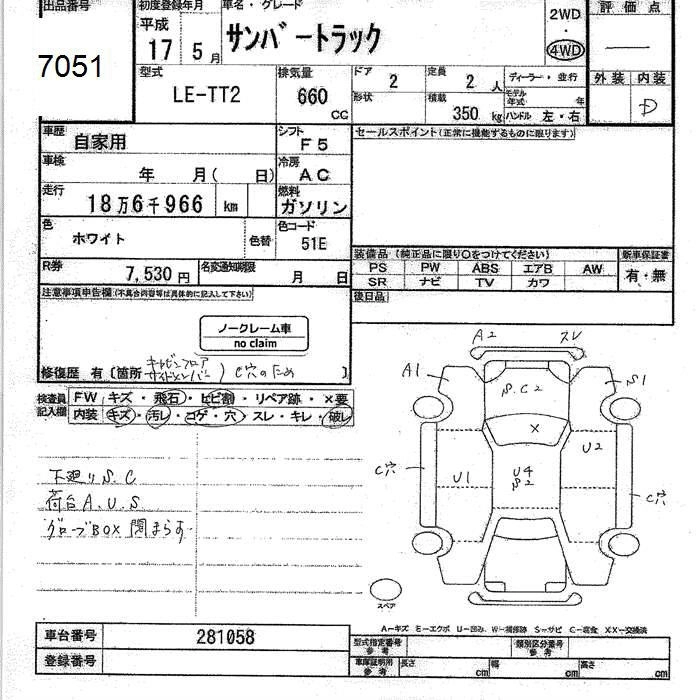 出品番号
7051
初度登録年月
平成
17 5 月
車名・グレード
サンバートラック
2WD
・
4WD
評価点
―
外装 内装
D
型式
LE-TT2
排気量
660
CC
ドア
2
定員
2 人
形状
積載
350 kg
ディーラー・並行
モデル
年式
年
ハンドル 左・右
車歴
自家用
シフト
F5
車検
年 月( 日)
冷房
AC
走行
18万6千966 km
燃料
ガソリン
色
ホワイト
色替
色コード
51E
R券
7,530 円
名変通知期限
月 日
セールスポイント(正常に機能するものに限ります)
装備品 (純正品に限り〇をつけてください)
新車保証書
PS PW ABS エアB AW
SR ナビ TV カワ
有・無
後日品
注意事項申告欄(不具合内容等は具体的に記入して下さい)
ノークレーム車
no claim
修復歴 有 [箇所 キャビンフロア
サイドメンバー) C穴のため ]
検査員
記入欄
FW キズ・飛石・ヒビ割・リペア跡・×要
内装 キズ・汚レ・コゲ・穴・スレ・キレ・破レ
下廻りS.C
荷台A.U.S
グローブBOX 閉まらず
A2
スレ
A1
S1
S.C2
X
U2
C穴
U1
U4
S2
C穴
スペア
A―キズ E―エクボ U―凹み、W―補修跡 S―サビ C―腐食 XX―交換済
車台番号
281058
登録番号
型式指定番号
参考
類別区分番号
参考
車庫証明用
参考
長さ
cm
幅
cm
高さ
cm